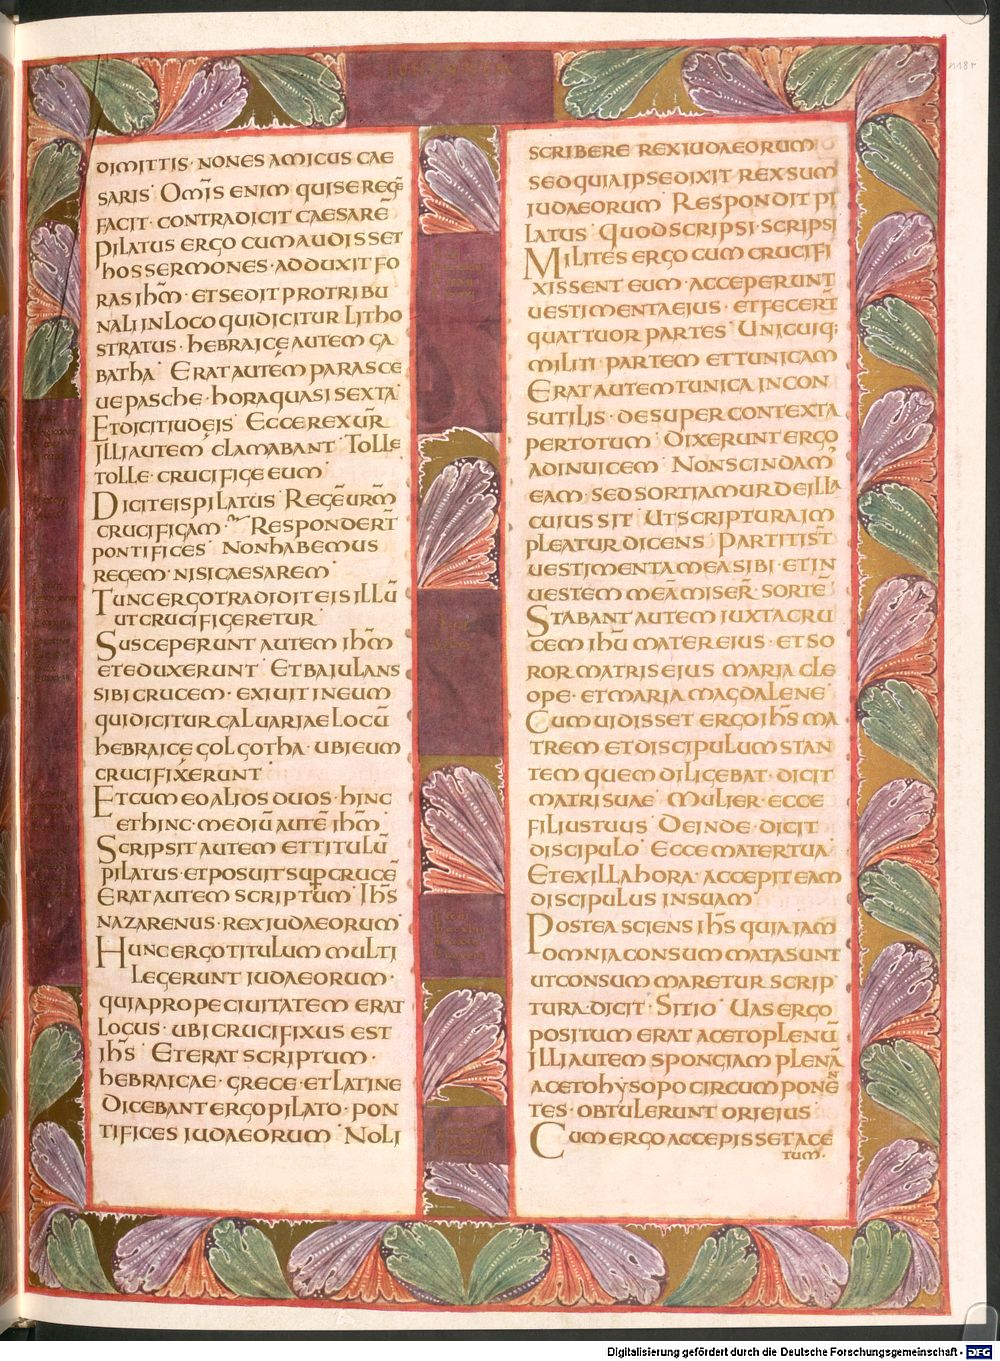 118r
DIMITTIS· NON ES AMICUS CAE
SARIS· OM̅S ENIM QUI SE REGE̅
FACIT· CONTRADICIT CAESARE̅
PILATUS ERGO CUM AUDISSET
HOS SERMONES· ADDUXIT FO
RAS IHM̅· ET SEDIT PRO TRIBU
NALI IN LOCO QUI DICITUR LITHO
STRATUS· HEBRAICE AUTEM GA
BATHA· ERAT AUTEM PARASCE
UE PASCHE· HORA QUASI SEXTA
ET DICIT IUDEIS· ECCE REX UR̅
ILLI AUTEM CLAMABANT· TOLLE
TOLLE· CRUCIFIGE EUM·
DICIT EIS PILATUS· REGE̅ URM̅
CRUCIFIGAM· RESPONDERT̅
PONTIFICES· NON HABEMUS
REGEM· NISI CAESAREM·
TUNC ERGO TRADIDIT EIS ILLU̅
UT CRUCIFIGERETUR·
SUSCEPERUNT AUTEM IHM̅
ET EDUXERUNT· ET BAJULANS
SIBI CRUCEM· EXIUIT IN EUM
QUI DICITUR CALUARIAE LOCU̅
HEBRAICE GOLGOTHA· UBI EUM
CRUCIFIXERUNT·
ET CUM EO ALIOS DUOS· HINC
ET HINC· MEDIU̅ AUTE̅ IHM̅·
SCRIPSIT AUTEM ET TITULU̅
PILATUS· ET POSUIT SUP CRUCE̅
ERAT AUTEM SCRIPTUM· IHS̅
NAZARENUS· REX IUDAEORUM·
HUNC ERGO TITULUM MULTI
LEGERUNT IUDAEORUM·
QUIA PROPE CIUITATEM ERAT
LOCUS· UBI CRUCIFIXUS EST
IHS̅· ET ERAT SCRIPTUM·
HEBRAICAE· GRECE· ET LATINE
DICEBANT ERGO PILATO· PON
TIFICES IUDAEORUM· NOLI
SCRIBERE REX IUDAEORUM
SED QUIA IPSE DIXIT REX SUM
IUDAEORUM· RESPONDIT PI
LATUS· QUOD SCRIPSI· SCRIPSI
MILITES ERGO CUM CRUCIFI
XISSENT EUM· ACCEPERUNT
UESTIMENTA EIUS· ET FECERT̅
QUATTUOR PARTES· UNICUIQ;
MILITI· PARTEM ET TUNICAM
ERAT AUTEM TUNICA INCON
SUTILIS· DESUPER CONTEXTA
PER TOTUM· DIXERUNT ERGO
AD INUICEM· NON SCINDAM᾿
EAM· SED SORTIAMUR DE ILLA
CUIUS SIT· UT SCRIPTURA IM
PLEATUR DICENS· PARTITI ST̅
UESTIMENTA MEA SIBI· ET IN
UESTEM MEA̅ MISER̅· SORTE̅
STABANT AUTEM IUXTA CRU
CEM IHU̅ MATER EIUS· ET SO
ROR MATRIS EIUS MARIA CLE
OPE· ET MARIA MAGDALENE·
CUM UIDISSET ERGO IHS̅ MA
TREM ET DISCIPULUM STAN
TEM QUEM DILIGEBAT· DICIT
MATRI SUAE· MULIER· ECCE
FILIUS TUUS· DEINDE· DICIT
DISCIPULO· ECCE MATER TUA·
ET EX ILLA HORA· ACCEPIT EAM
DISCIPULUS IN SUAM·
POSTEA SCIENS IHS̅ QUIA IAM
OMNIA CONSUMMATA SUNT
UT CONSUMMARETUR SCRIP
TURA· DICIT· SITIO· UAS ERGO
POSITUM ERAT ACETO PLENU̅
ILLI AUTEM SPONGIAM PLENA̅
ACETO HYSOPO CIRCUM PONEN
TES· OBTULERUNT ORI EIUS·
CUM ERGO ACCEPISSET ACE
TUM·
Digitalisierung gefördert durch die Deutsche Forschungsgemeinschaft - DFG